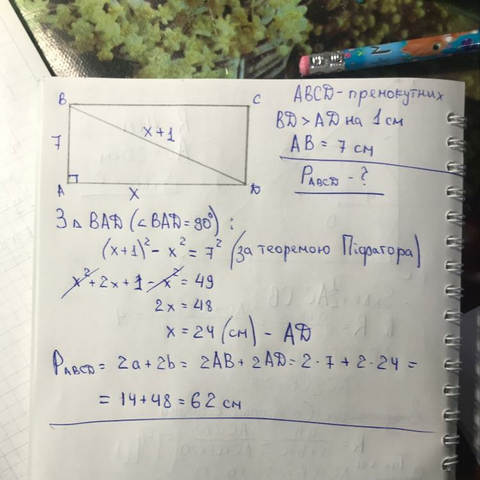 ABCD - прямокутник
BD > AD на 1 см
AB = 7 см
P_ABCD - ?
B
C
7
x+1
A
x
D
З △ BAD (∠BAD = 90°) :
(x+1)² - x² = 7² (за теоремою Піфагора)
x² + 2x + 1 - x² = 49
2x = 48
x = 24 (см) - AD
P_ABCD = 2a + 2b = 2AB + 2AD = 2·7 + 2·24 =
= 14 + 48 = 62 см